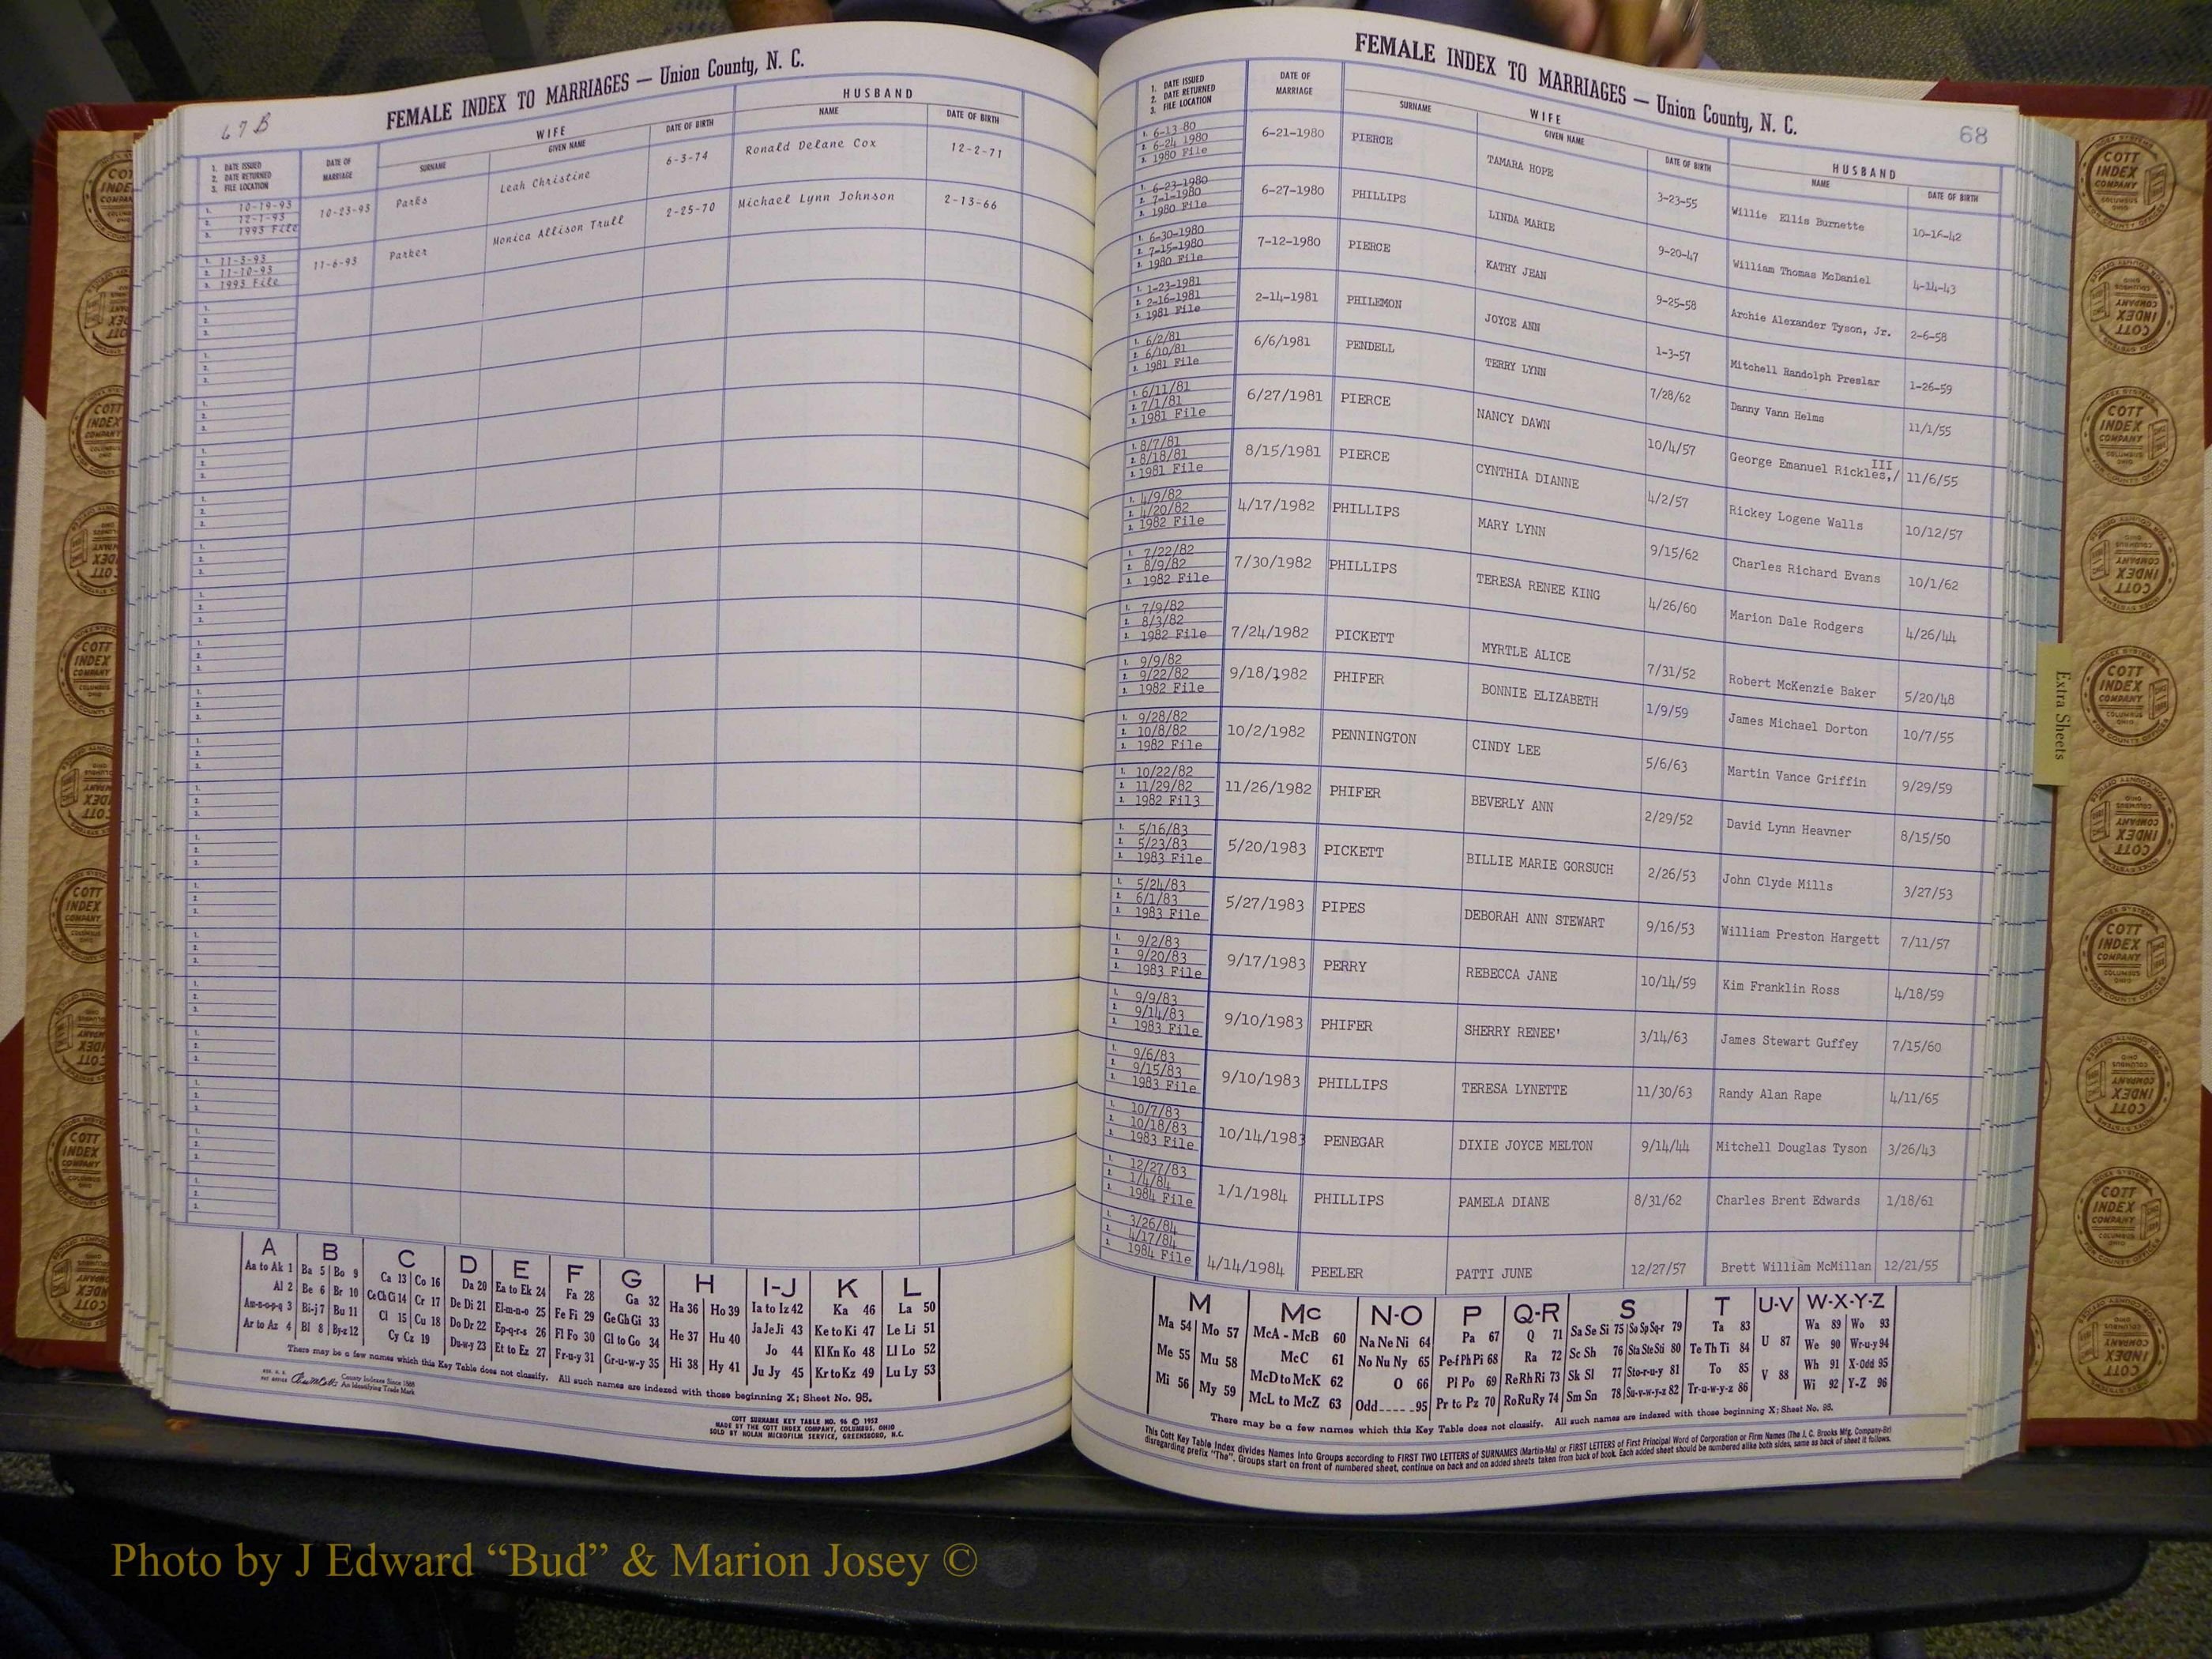 67B
FEMALE INDEX TO MARRIAGES — Union County, N. C.
1. DATE ISSUED
2. DATE RETURNED
3. FILE LOCATION
DATE OF MARRIAGE
WIFE
SURNAME GIVEN NAME DATE OF BIRTH
HUSBAND
NAME DATE OF BIRTH
1. 10-19-93
2. 12-1-93
3. 1993 File
10-23-93 Parks Leah Christine 6-3-74 Ronald Delane Cox 12-2-71
1. 11-3-93
2. 11-10-93
3. 1993 File
11-6-93 Parker Monica Allison Trull 2-25-70 Michael Lynn Johnson 2-13-66
A B C D E F G H I-J K L
Aa to Ak 1 Ba 5 Bo 9 Ca 13 Co 16 Da 20 Ea to Ek 24 Fa 28 Ga 32 Ha 36 Ho 39 Ia to Iz 42 Ka 46 La 50
Al 2 Be 6 Br 10 Ce Ch Ci 14 Cr 17 De Di 21 El-m-n-o 25 Fe Fi 29 Ge Gh Gi 33 He 37 Hu 40 Ja Je Ji 43 Ke to Ki 47 Le Li 51
Am-n-o-p-q 3 Bi-j 7 Bu 11 Cl 15 Cu 18 Do Dr 22 Ep-q-r-s 26 Fl Fo 30 Gl to Go 34 Hi 38 Hy 41 Jo 44 Kl Kn Ko 48 Ll Lo 52
Ar to Az 4 Bl 8 By-z 12 Cy Cz 19 Du-w-y 23 Et to Ez 27 Fr-u-y 31 Gr-u-w-y 35 Ju Jy 45 Kr to Kz 49 Lu Ly 53
There may be a few names which this Key Table does not classify. All such names are indexed with those beginning X; Sheet No. 95.
County Indexes Since 1888
An Identifying Trade Mark
COTT SURNAME KEY TABLE NO. 96 © 1952
MADE BY THE COTT INDEX COMPANY, COLUMBUS, OHIO
SOLD BY NOLAN MICROFILM SERVICE, GREENSBORO, N.C.
FEMALE INDEX TO MARRIAGES — Union County, N. C.
68
1. DATE ISSUED
2. DATE RETURNED
3. FILE LOCATION
DATE OF MARRIAGE
WIFE
SURNAME GIVEN NAME DATE OF BIRTH
HUSBAND
NAME DATE OF BIRTH
1. 6-13-80
2. 6-24 1980
3. 1980 File
6-21-1980 PIERCE TAMARA HOPE 3-23-55 Willie Ellis Burnette 10-16-42
1. 6-23-1980
2. 7-1-1980
3. 1980 File
6-27-1980 PHILLIPS LINDA MARIE 9-20-47 William Thomas McDaniel 4-14-43
1. 6-30-1980
2. 7-15-1980
3. 1980 File
7-12-1980 PIERCE KATHY JEAN 9-25-58 Archie Alexander Tyson, Jr. 2-6-58
1. 1-23-1981
2. 2-16-1981
3. 1981 File
2-14-1981 PHILEMON JOYCE ANN 1-3-57 Mitchell Randolph Preslar 1-26-59
1. 6/2/81
2. 6/10/81
3. 1981 File
6/6/1981 PENDELL TERRY LYNN 7/28/62 Danny Vann Helms 11/1/55
1. 6/11/81
2. 7/1/81
3. 1981 File
6/27/1981 PIERCE NANCY DAWN 10/4/57 George Emanuel Rickles,/ III 11/6/55
1. 8/7/81
2. 8/18/81
3. 1981 File
8/15/1981 PIERCE CYNTHIA DIANNE 4/2/57 Rickey Logene Walls 10/12/57
1. 4/9/82
2. 4/20/82
3. 1982 File
4/17/1982 PHILLIPS MARY LYNN 9/15/62 Charles Richard Evans 10/1/62
1. 7/22/82
2. 8/9/82
3. 1982 File
7/30/1982 PHILLIPS TERESA RENEE KING 4/26/60 Marion Dale Rodgers 4/26/44
1. 7/9/82
2. 8/3/82
3. 1982 File
7/24/1982 PICKETT MYRTLE ALICE 7/31/52 Robert McKenzie Baker 5/20/48
1. 9/9/82
2. 9/22/82
3. 1982 File
9/18/1982 PHIFER BONNIE ELIZABETH 1/9/59 James Michael Dorton 10/7/55
1. 9/28/82
2. 10/8/82
3. 1982 File
10/2/1982 PENNINGTON CINDY LEE 5/6/63 Martin Vance Griffin 9/29/59
1. 10/22/82
2. 11/29/82
3. 1982 Fil3
11/26/1982 PHIFER BEVERLY ANN 2/29/52 David Lynn Heavner 8/15/50
1. 5/16/83
2. 5/23/83
3. 1983 File
5/20/1983 PICKETT BILLIE MARIE GORSUCH 2/26/53 John Clyde Mills 3/27/53
1. 5/24/83
2. 6/1/83
3. 1983 File
5/27/1983 PIPES DEBORAH ANN STEWART 9/16/53 William Preston Hargett 7/11/57
1. 9/2/83
2. 9/20/83
3. 1983 File
9/17/1983 PERRY REBECCA JANE 10/14/59 Kim Franklin Ross 4/18/59
1. 9/9/83
2. 9/14/83
3. 1983 File
9/10/1983 PHIFER SHERRY RENEE' 3/14/63 James Stewart Guffey 7/15/60
1. 9/6/83
2. 9/15/83
3. 1983 File
9/10/1983 PHILLIPS TERESA LYNETTE 11/30/63 Randy Alan Rape 4/11/65
1. 10/7/83
2. 10/18/83
3. 1983 File
10/14/1983 PENEGAR DIXIE JOYCE MELTON 9/14/44 Mitchell Douglas Tyson 3/26/43
1. 12/27/83
2. 1/4/84
3. 1984 File
1/1/1984 PHILLIPS PAMELA DIANE 8/31/62 Charles Brent Edwards 1/18/61
1. 3/26/84
2. 4/17/84
3. 1984 File
4/14/1984 PEELER PATTI JUNE 12/27/57 Brett William McMillan 12/21/55
M Mc N-O P Q-R S T U-V W-X-Y-Z
Ma 54 Mo 57 McA - McB 60 Na Ne Ni 64 Pa 67 Q 71 Sa Se Si 75 So Sp Sq-r 79 Ta 83 U 87 Wa 89 Wo 93
Me 55 Mu 58 McC 61 No Nu Ny 65 Pe-f Ph Pi 68 Ra 72 Sc Sh 76 Sta Ste Sti 80 Te Th Ti 84 V 88 We 90 Wr-u-y 94
Mi 56 My 59 McD to McK 62 O 66 Pl Po 69 Re Rh Ri 73 Sk Sl 77 Sto-r-u-y 81 To 85 Wh 91 X-Odd 95
McL to McZ 63 Odd 95 Pr to Pz 70 Ro Ru Ry 74 Sm Sn 78 Su-v-w-y-z 82 Tr-u-w-y-z 86 Wi 92 Y-Z 96
There may be a few names which this Key Table does not classify. All such names are indexed with those beginning X; Sheet No. 95.
This Cott Key Table Index divides Names Into Groups according to FIRST TWO LETTERS of SURNAMES (Martin-Ma) or FIRST LETTERS of First Principal Word of Corporation or Firm Names (The J. C. Brooks Mfg. Company-Br)
disregarding prefix "The". Groups start on front of numbered sheet, continue on back and on added sheets taken from back of book. Each added sheet should be numbered alike both sides, same as back of sheet it follows.
Extra Sheets
COTT INDEX COMPANY COLUMBUS OHIO
INDEX SYSTEMS FOR COUNTY OFFICES
Photo by J Edward “Bud” & Marion Josey ©